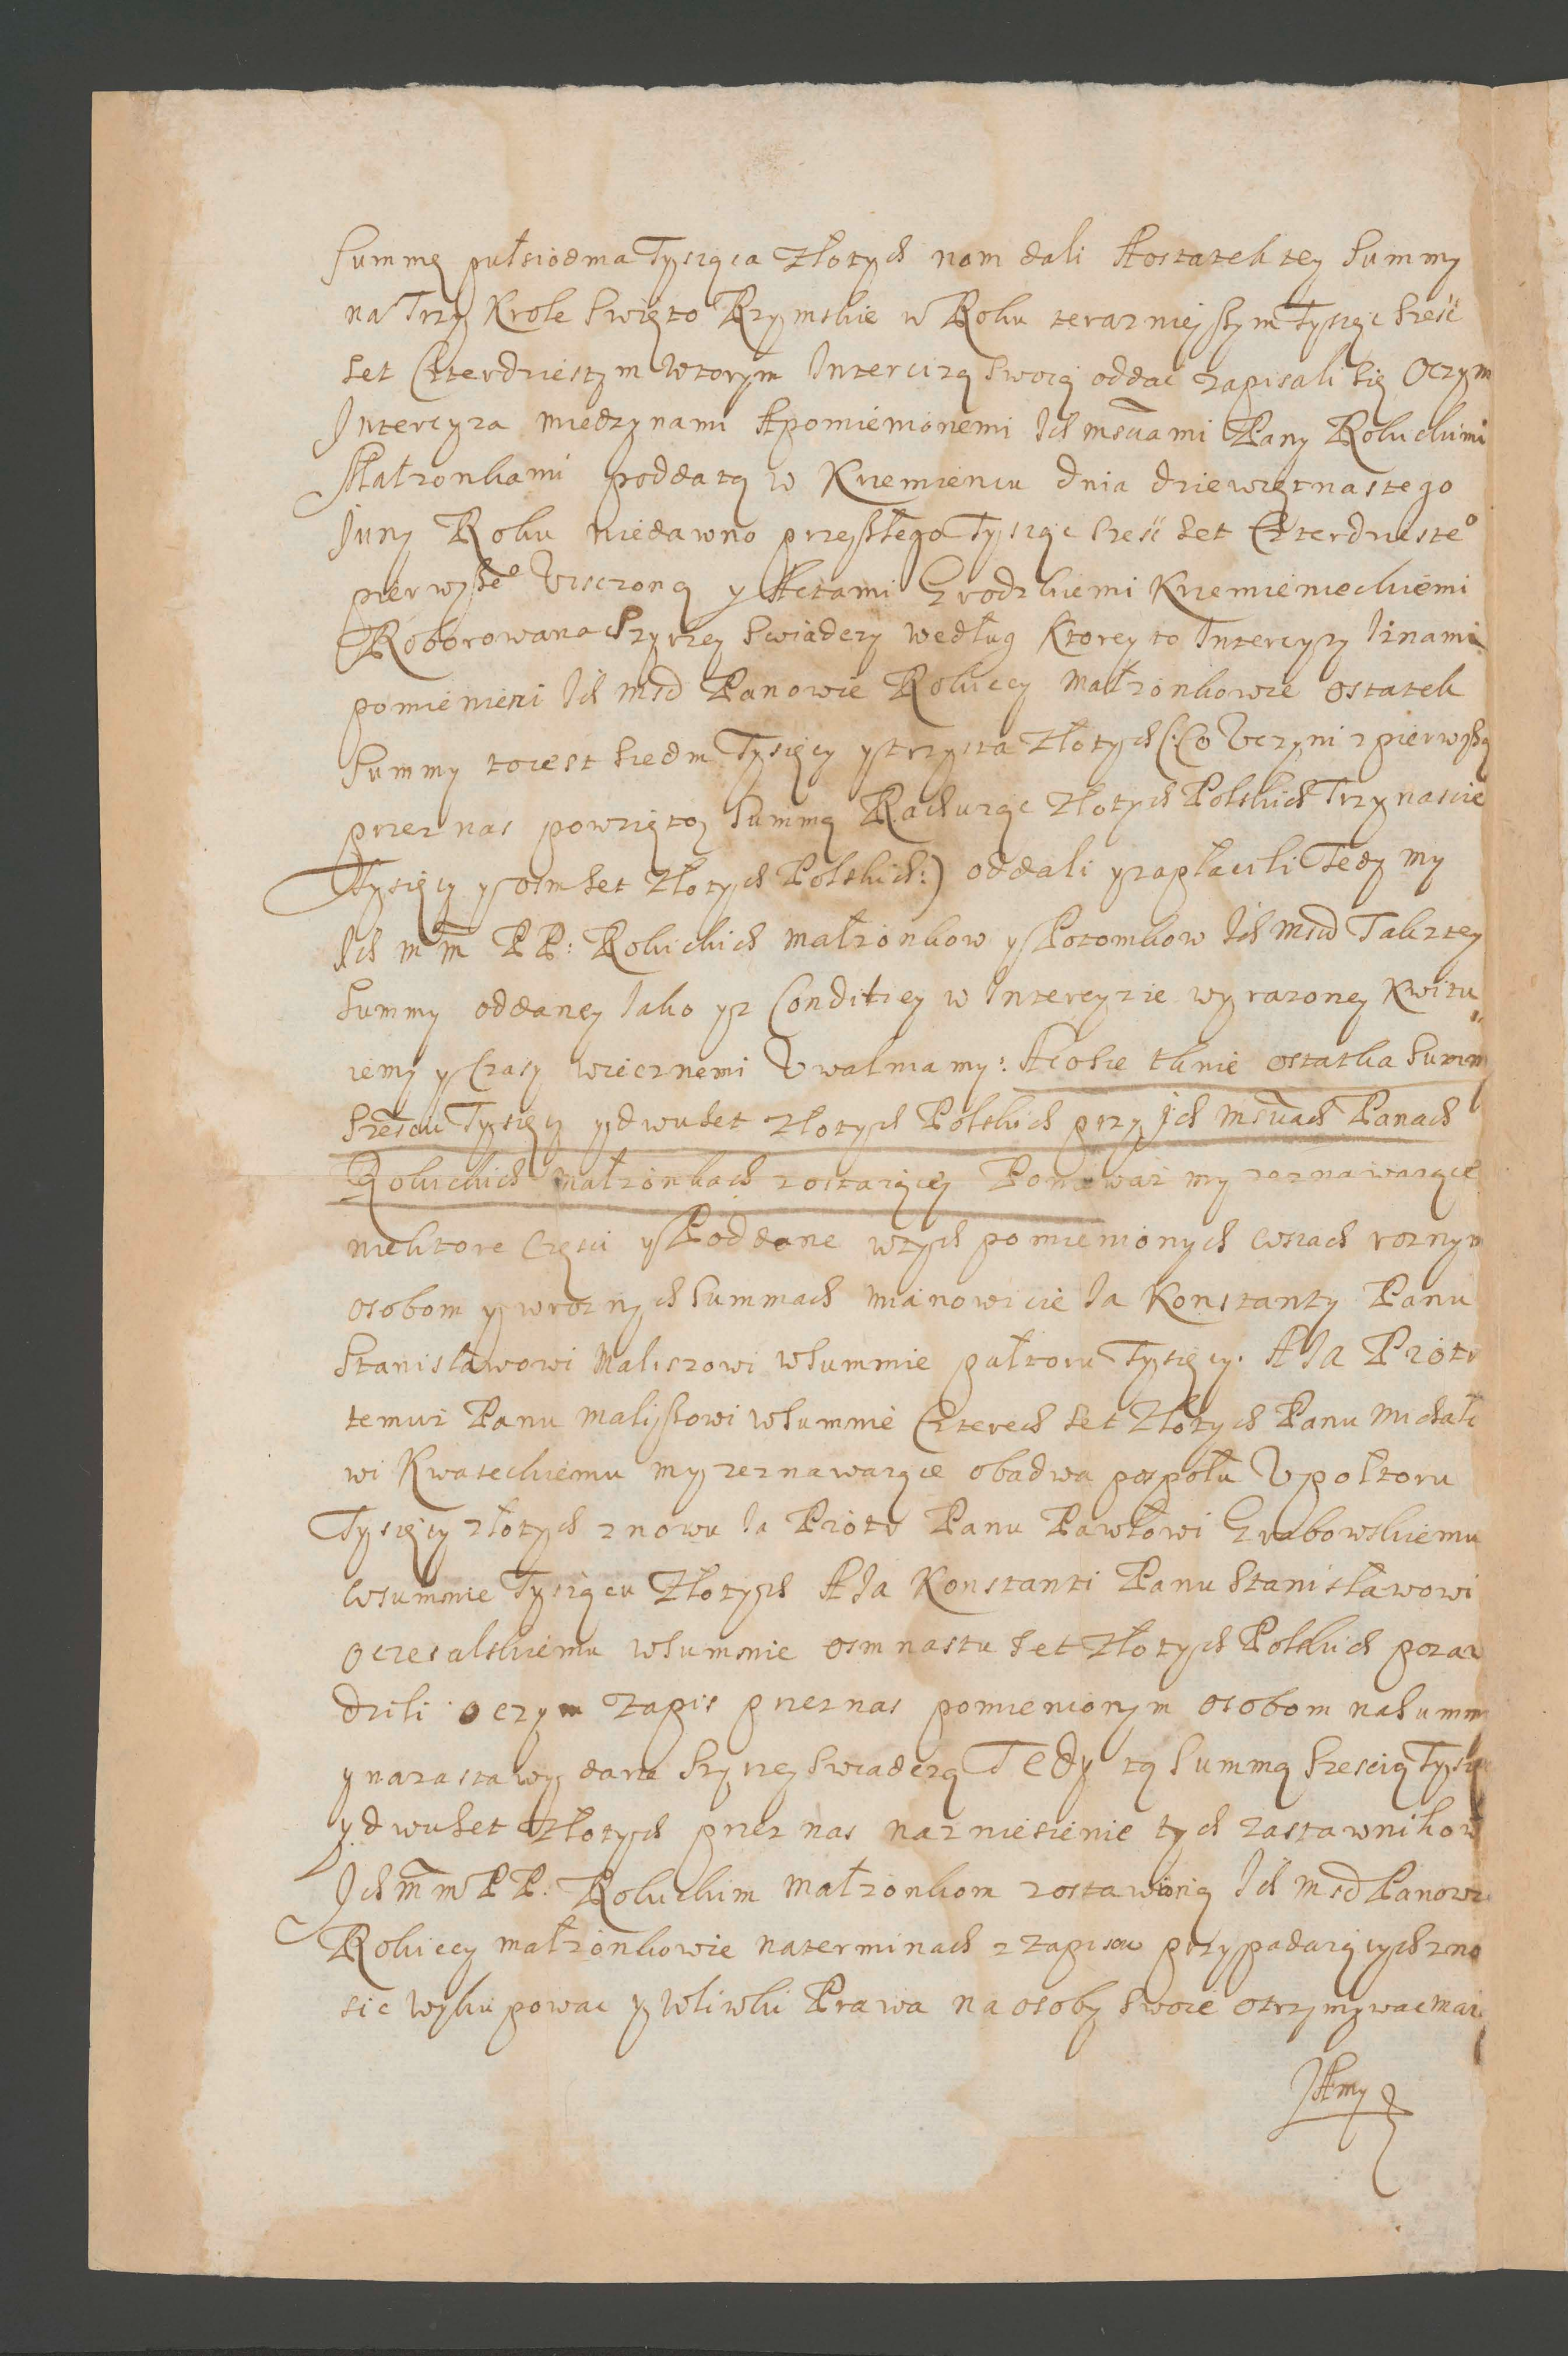 Summę pułsiodma Tysiąca Złotych nam dali Aostatek tey Summy
na Trzy Krole Swięto Rzymskie w Roku terazniejszym Tysiąc Sześć
set Czterdziestym Wtorym Intercizą Swoią oddać zapisali się Oczym
Intercyza miedzynami Apomienionemi Ich mściami Pany Rokickimi
Małzonkami poddatą w Krzemieńcu dnia dziewiętnastego
Juny Roku niedawno przeszłego Tysiąc sześć set Czterdzieste°
pierwsze° Visczoną y Actami Grodzkiemi Krzemienieckiemi
Roborowana Szyrzey Swiadczy według Ktorey to Intercyzy Iżnami
pomienieni Ich mśc Panowie Rokiccy małzonkowie ostatek
Summy toiest siedm Tysięcy ytrzysta Złotych (:Co Vczyni zpierwszą
przez nas powziętą Summą Rachuząc Złotych Polskich Trzynascie
Tysięcy yosmset Złotych Polskich:) oddali yzapłacili Tedy my
Ich m m PP: Rokickich małzonkow yPotomkow Ich mśc Takztey
Summy oddaney Iako yz Conditiey w Intercyzie wyrazoney Kwitu
iemy yCzasy wiecznemi Vwalniamy: Acosie tknie ostatka Summ
Sześciu Tysięcy ydwuset Złotych Polskich przy Ich mściach Panach
Rokickich małzonkach zostaiącey Poniewaz my zeznawaiące
niektore Części yPoddane wtych pomienionych wsiach roznym
osobom ywroznych Summach mianowicie Ia Konstanty Panu
Stanisławowi Maliszowi wSummie pułtoru Tysięcy. A Ia Piotr
temuz Panu Maliszowi wSummie Czterech set Złotych Panu Michało
wi Kwateckiemu my zeznawaiące obadwa pospołu Vpołtoru
Tysięcy złotych znowu Ia Piotr Panu Pawłowi Grabowskiemu
wsummie Tysiącu Złotych A Ia Konstanti Panu Stanisławowi
Oczesalskiemu wSummie osmnastu set Złotych Polskich poza
dzili oczym Zapis przeznas pomienionym osobom naSumm
ynazastawy dane Szyrzey Swiadczą Tedy tą Summą Sześcią Tysię
ydwuset Złotych przez nas nazniesienie tych zastawnikow
Ich m m PP: Rokickim Małzonkom zostawioną Ich mśc Panowie
Rokiccy małzonkowie naterminach zzapisow przypadaiących zno
sic wykupowac y wliwki Prawa na osoby swoie otrzymywac maią
Amy